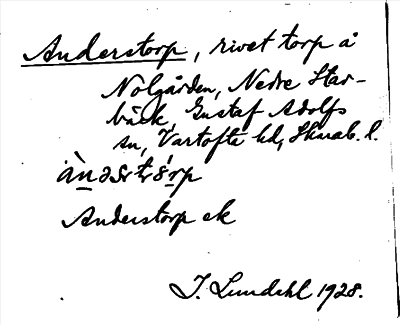 Anderstorp, rivet torp å
Nolgården, Nedre Star-
bäck, Gustaf Adolfs
sn, Vartofta hd, Skarab. l.
Anderstorp ek
J. Lundahl 1928.